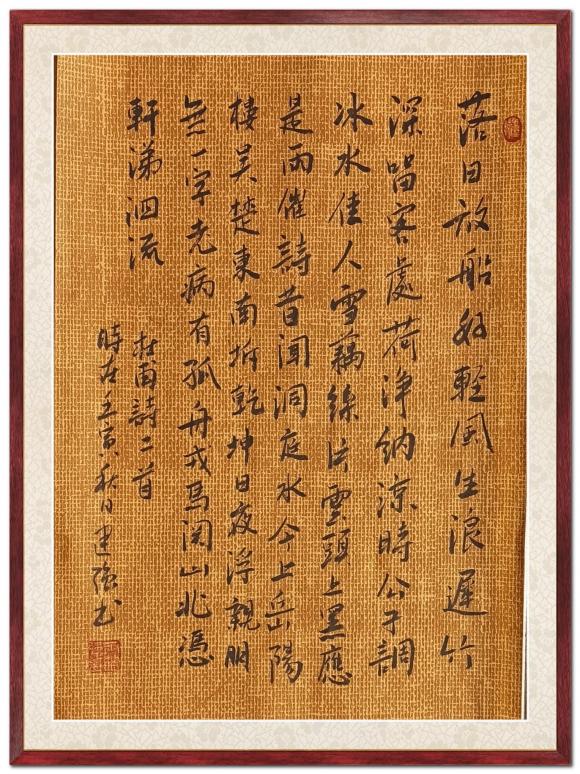 落日放船好輕風生浪遲竹
深留客處荷淨納涼時公子調
冰水佳人雪藕絲片雲頭上黑應
是雨催詩昔聞洞庭水今上岳陽
樓吳楚東南坼乾坤日夜浮親朋
無一字老病有孤舟戎馬關山北憑
軒涕泗流
杜甫詩二首
時在壬寅秋日建強书